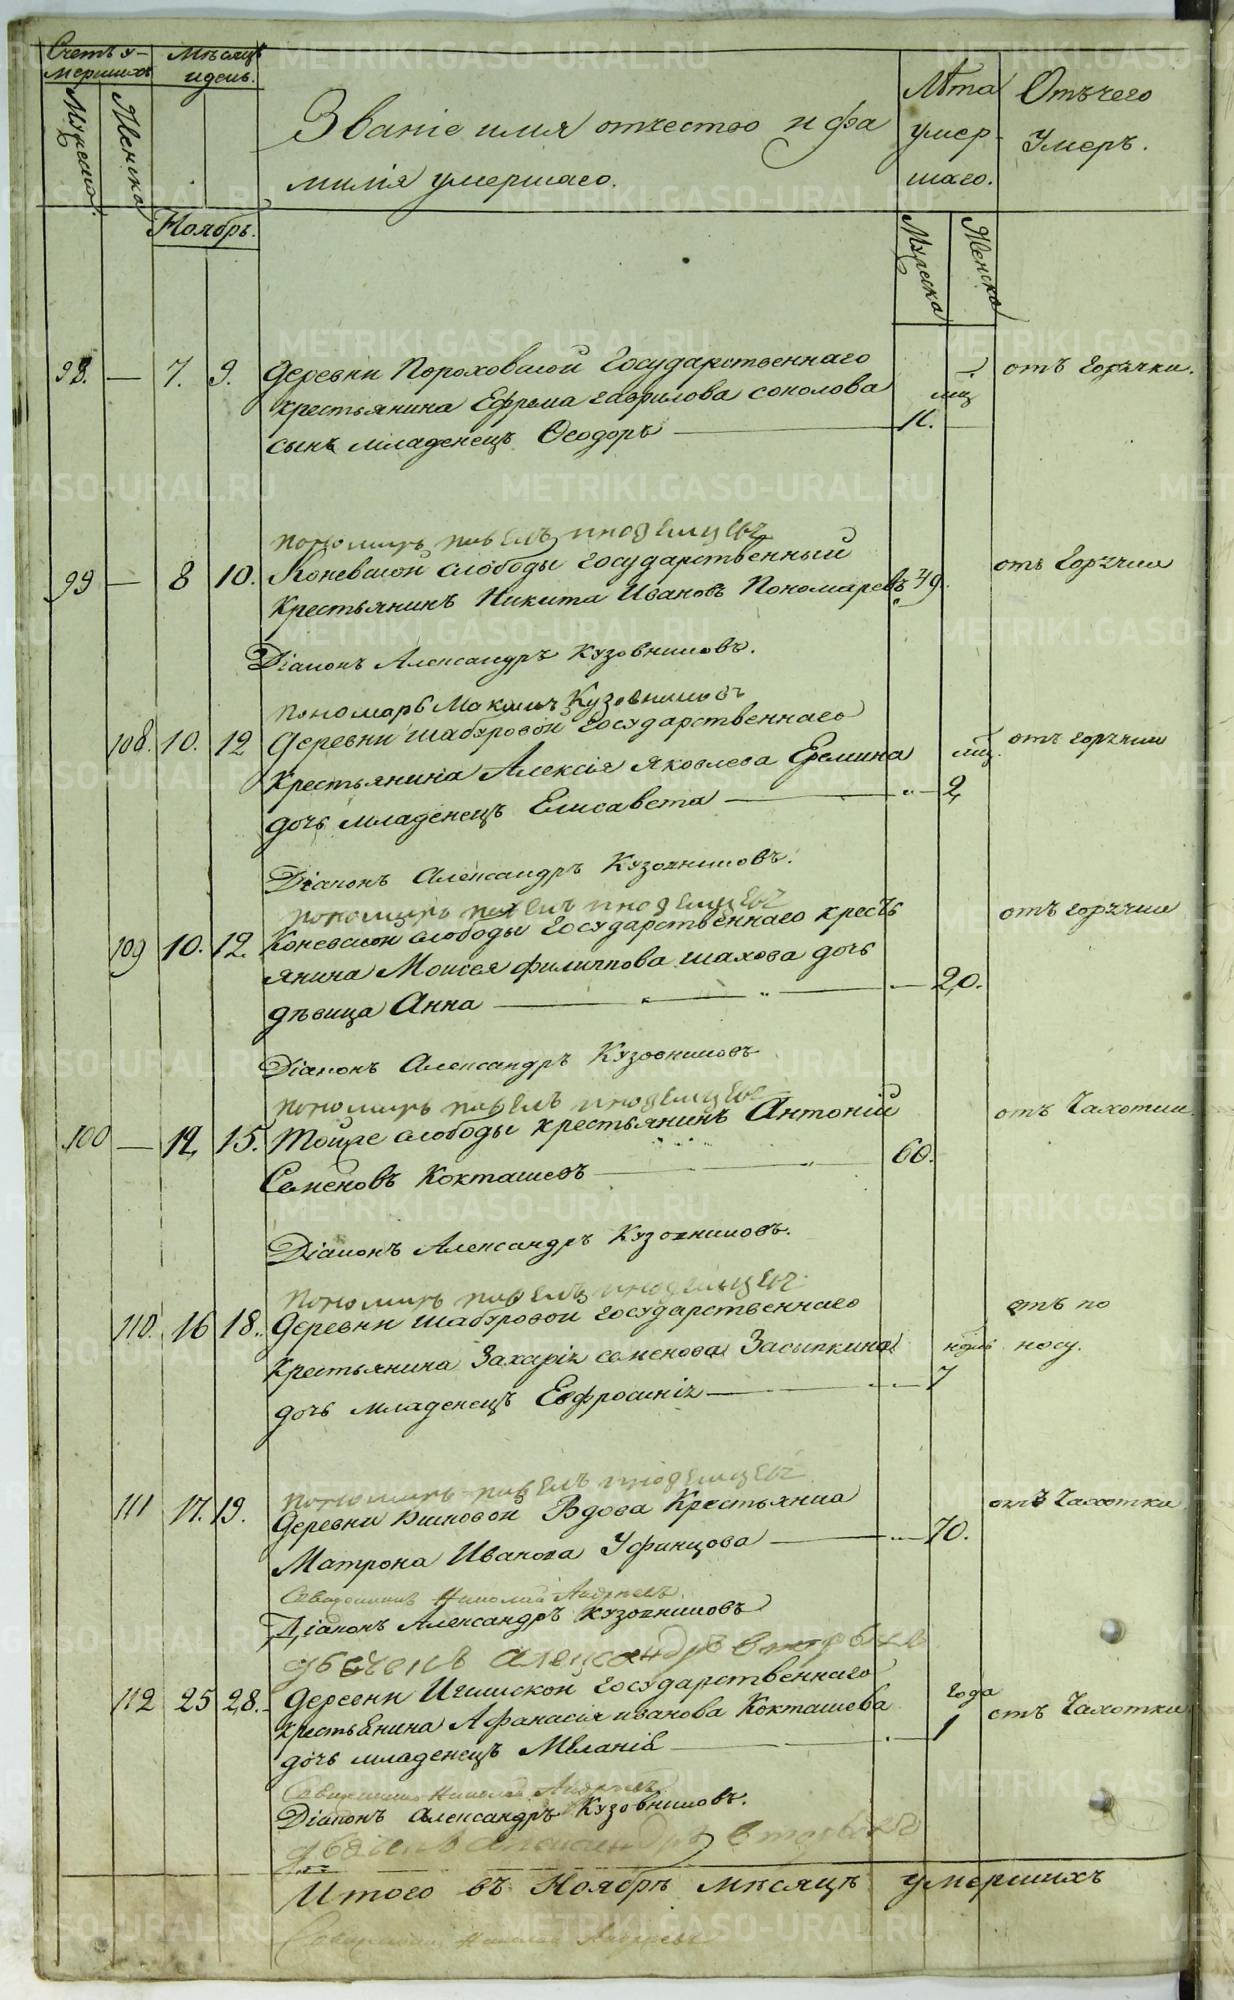 Счетъ у-
мершихъ
Мѣсяцъ
и день.
Званіе имя отчество и фа
милія умершаго.
Лѣта
умер-
шаго.
Отъ чего
умеръ.
Мужеска.
Женска.
Ноябрь.
Мужеска
Женска
98. — 7. 9. Деревни Пороховской Государственнаго
крестьянина Ефрема гаврилова соколова
сынъ младенецъ Ѳеодоръ
мц
отъ горячки.
пономарь павелъ
99 — 8 10. Коневской слободы государственный
крестьянинъ Никита Ивановъ Пономаревъ
отъ горячки
Діаконъ Александръ Кузовниковъ.
пономарь Максимъ Кузовниковъ
108. 10. 12 Деревни шабуровой государственнаго
крестьянина Алексія Яковлева Еремина
дочь младенецъ Елисавета
мц. 2
отъ горячки
Діаконъ Александръ Кузовниковъ.
пономарь павелъ
109 10. 12. Коневской слободы Государственнаго кресть
янина Моисея филиппова шахова дочь
дѣвица Анна
20.
отъ горячки
Діаконъ Александръ Кузовниковъ
пономарь павелъ
100 — 12, 15. Тойже слободы крестьянинъ Антоній
Семеновъ Кокташевъ
60.
отъ Чахотки
Діаконъ Александръ Кузовниковъ.
пономарь павелъ
110. 16 18. Деревни шабуровой государственнаго
крестьянина Захаріи семенова Засыпкина
дочь младенецъ Евфросинія
7
отъ по
носу.
пономарь павелъ
111 17. 19. Деревни Вдова Крестьянка
Матрона Иванова Уфинцова
70.
отъ Чахотки
Священникъ Николай Андреевъ
Діаконъ Александръ Кузовниковъ
дьячекъ Александръ
112 25 28. Деревни Игишской Государственнаго
крестьянина Афанасія иванова Кокташева
дочь младенецъ Меланія
года
1
отъ Чахотки
Священникъ Николай Андреевъ
Діаконъ Александръ Кузовниковъ.
дьячекъ Александръ
Итого въ Ноябрѣ мѣсяцѣ умершихъ
Священникъ Николай Андреевъ
METRIKI.GASO-URAL.RU